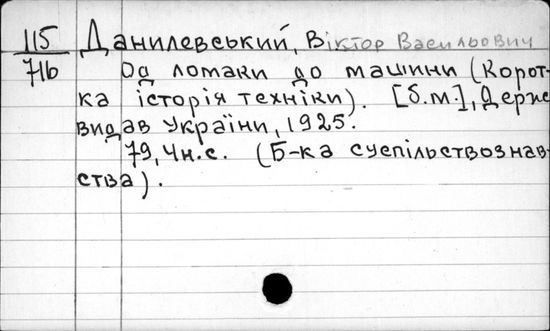 115 Данилевський, Віктор Васильович
716 Од ломаки до машини (Корот-
ка історія техніки). [б.м.], Держ
видав України, 1925.
79, 4н.с. (Б-ка суспільствознав-
ства).